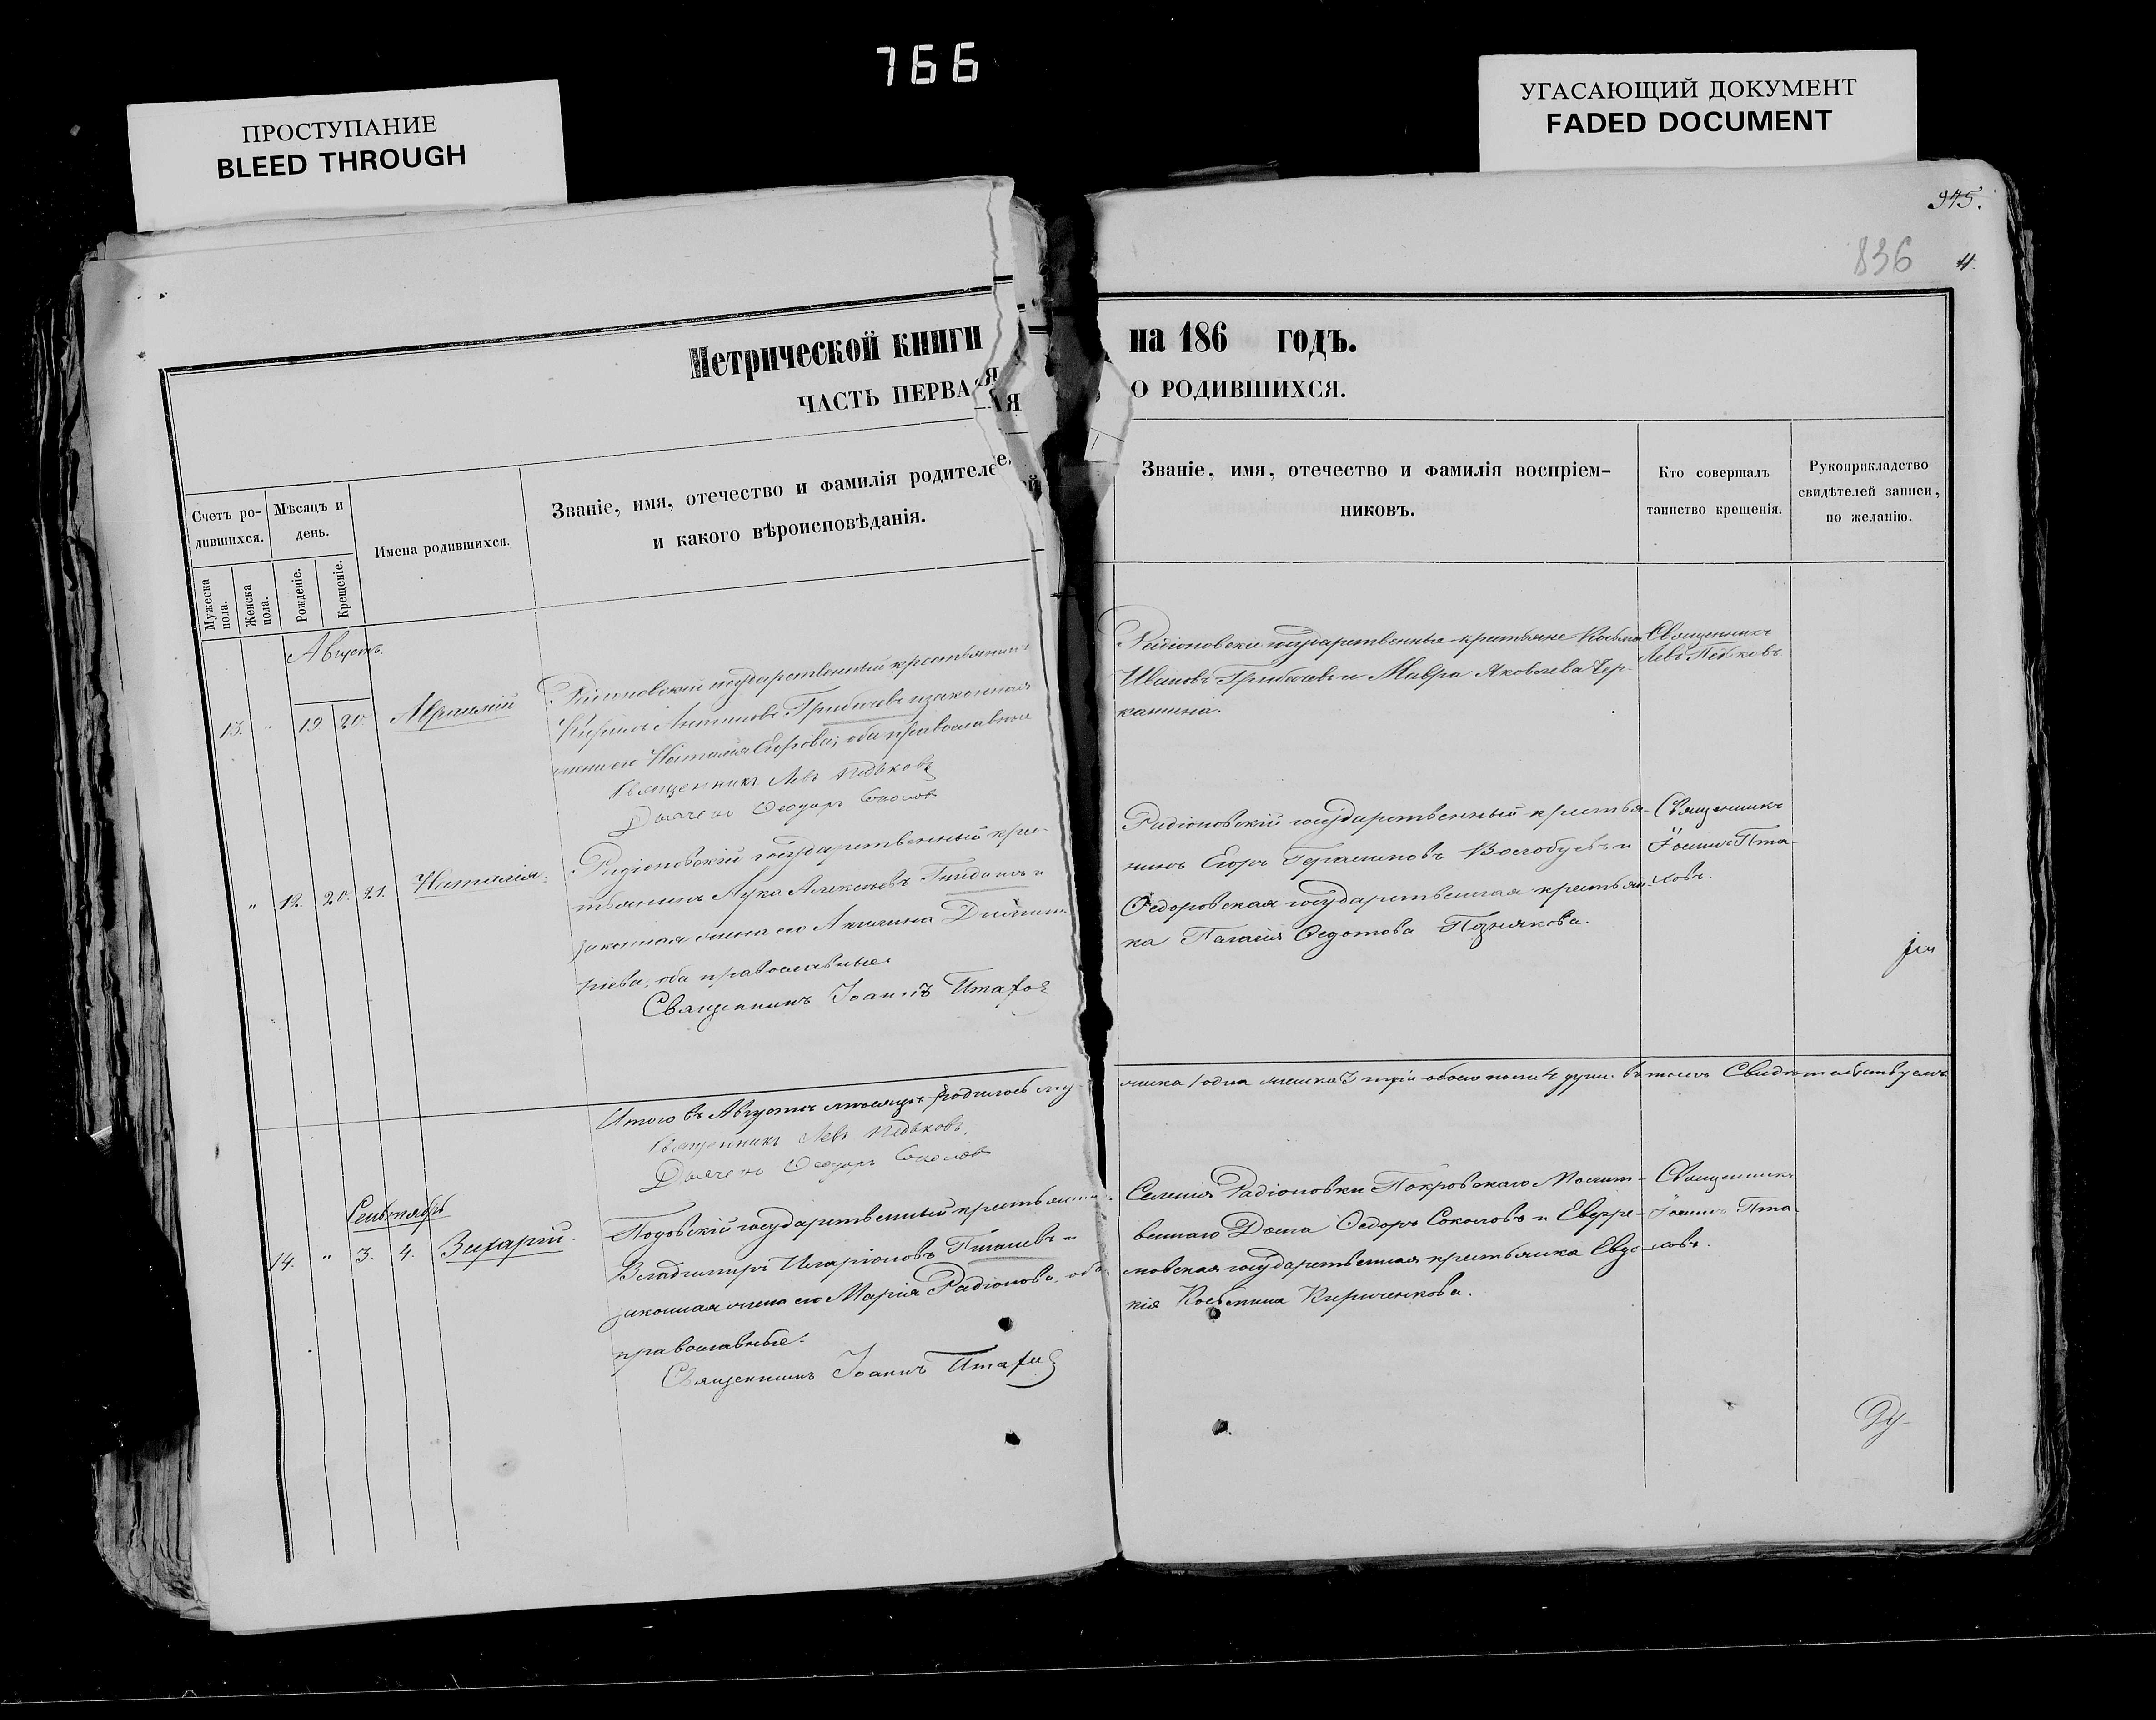 766
ПРОСТУПАНИЕ
BLEED THROUGH
УГАСАЮЩИЙ ДОКУМЕНТ
FADED DOCUMENT
945.
836
4.
Метрической книги на 186 годъ.
ЧАСТЬ ПЕРВАЯ О РОДИВШИХСЯ.
Счетъ ро-
дившихся.
Мужеска пола.
Женска пола.
Мѣсяцъ и
день.
Рожденіе.
Крещеніе.
Имена родившихся.
Званіе, имя, отечество и фамилія родителей
и какого вѣроисповѣданія.
Званіе, имя, отечество и фамилія воспріем-
никовъ.
Кто совершалъ
таинство крещенія.
Рукоприкладство
свидѣтелей записи,
по желанію.
Августъ.
13. " 19. 20
государственный крестьянинъ
Кирилъ Антиповъ Грибачевъ и законная
жена его Наталія Егорова; оба православные
Священникъ Левъ
Дьячекъ Ѳеодоръ Соколовъ
государственные крестьяне Косьма
Ивановъ Грибачевъ и Мавра Яковлева Чер-
кашина.
Священникъ
Левъ
" 12. 20. 21. Наталія.
Радіоновскій государственный крес-
тьянинъ Лука Алексѣевъ и
законная жена его Акилина Димит-
ріева, оба православные.
Священникъ Іоаннъ
Радіоновскій государственный крестья-
нинъ Егоръ Герасимовъ Волобуевъ и
Ѳедоровская государственная крестьян-
ка Пелагія Ѳедотова Познякова.
Священникъ
Іоаннъ Пта-
ховъ.
Итого въ Августѣ мѣсяцѣ родилось му-
жеска 1 одна женска 3 три обоего пола 4 душ. въ томъ Свидѣтельствуемъ
Священникъ Левъ
Дьячекъ Ѳеодоръ Соколовъ
Сентябрь
14. " 3. 4. Захарій.
государственный крестьянинъ
Владимиръ Иларіоновъ и
законная жена его Марія Радіонова, оба
православные.
Священникъ Іоаннъ
Селенія Радіоновки Покровскаго Молит-
веннаго Дома Ѳедоръ Соколовъ и
государственная крестьянка Евдо-
кія Косьмина Кириченкова.
Священникъ
Іоаннъ Пта-
ховъ.